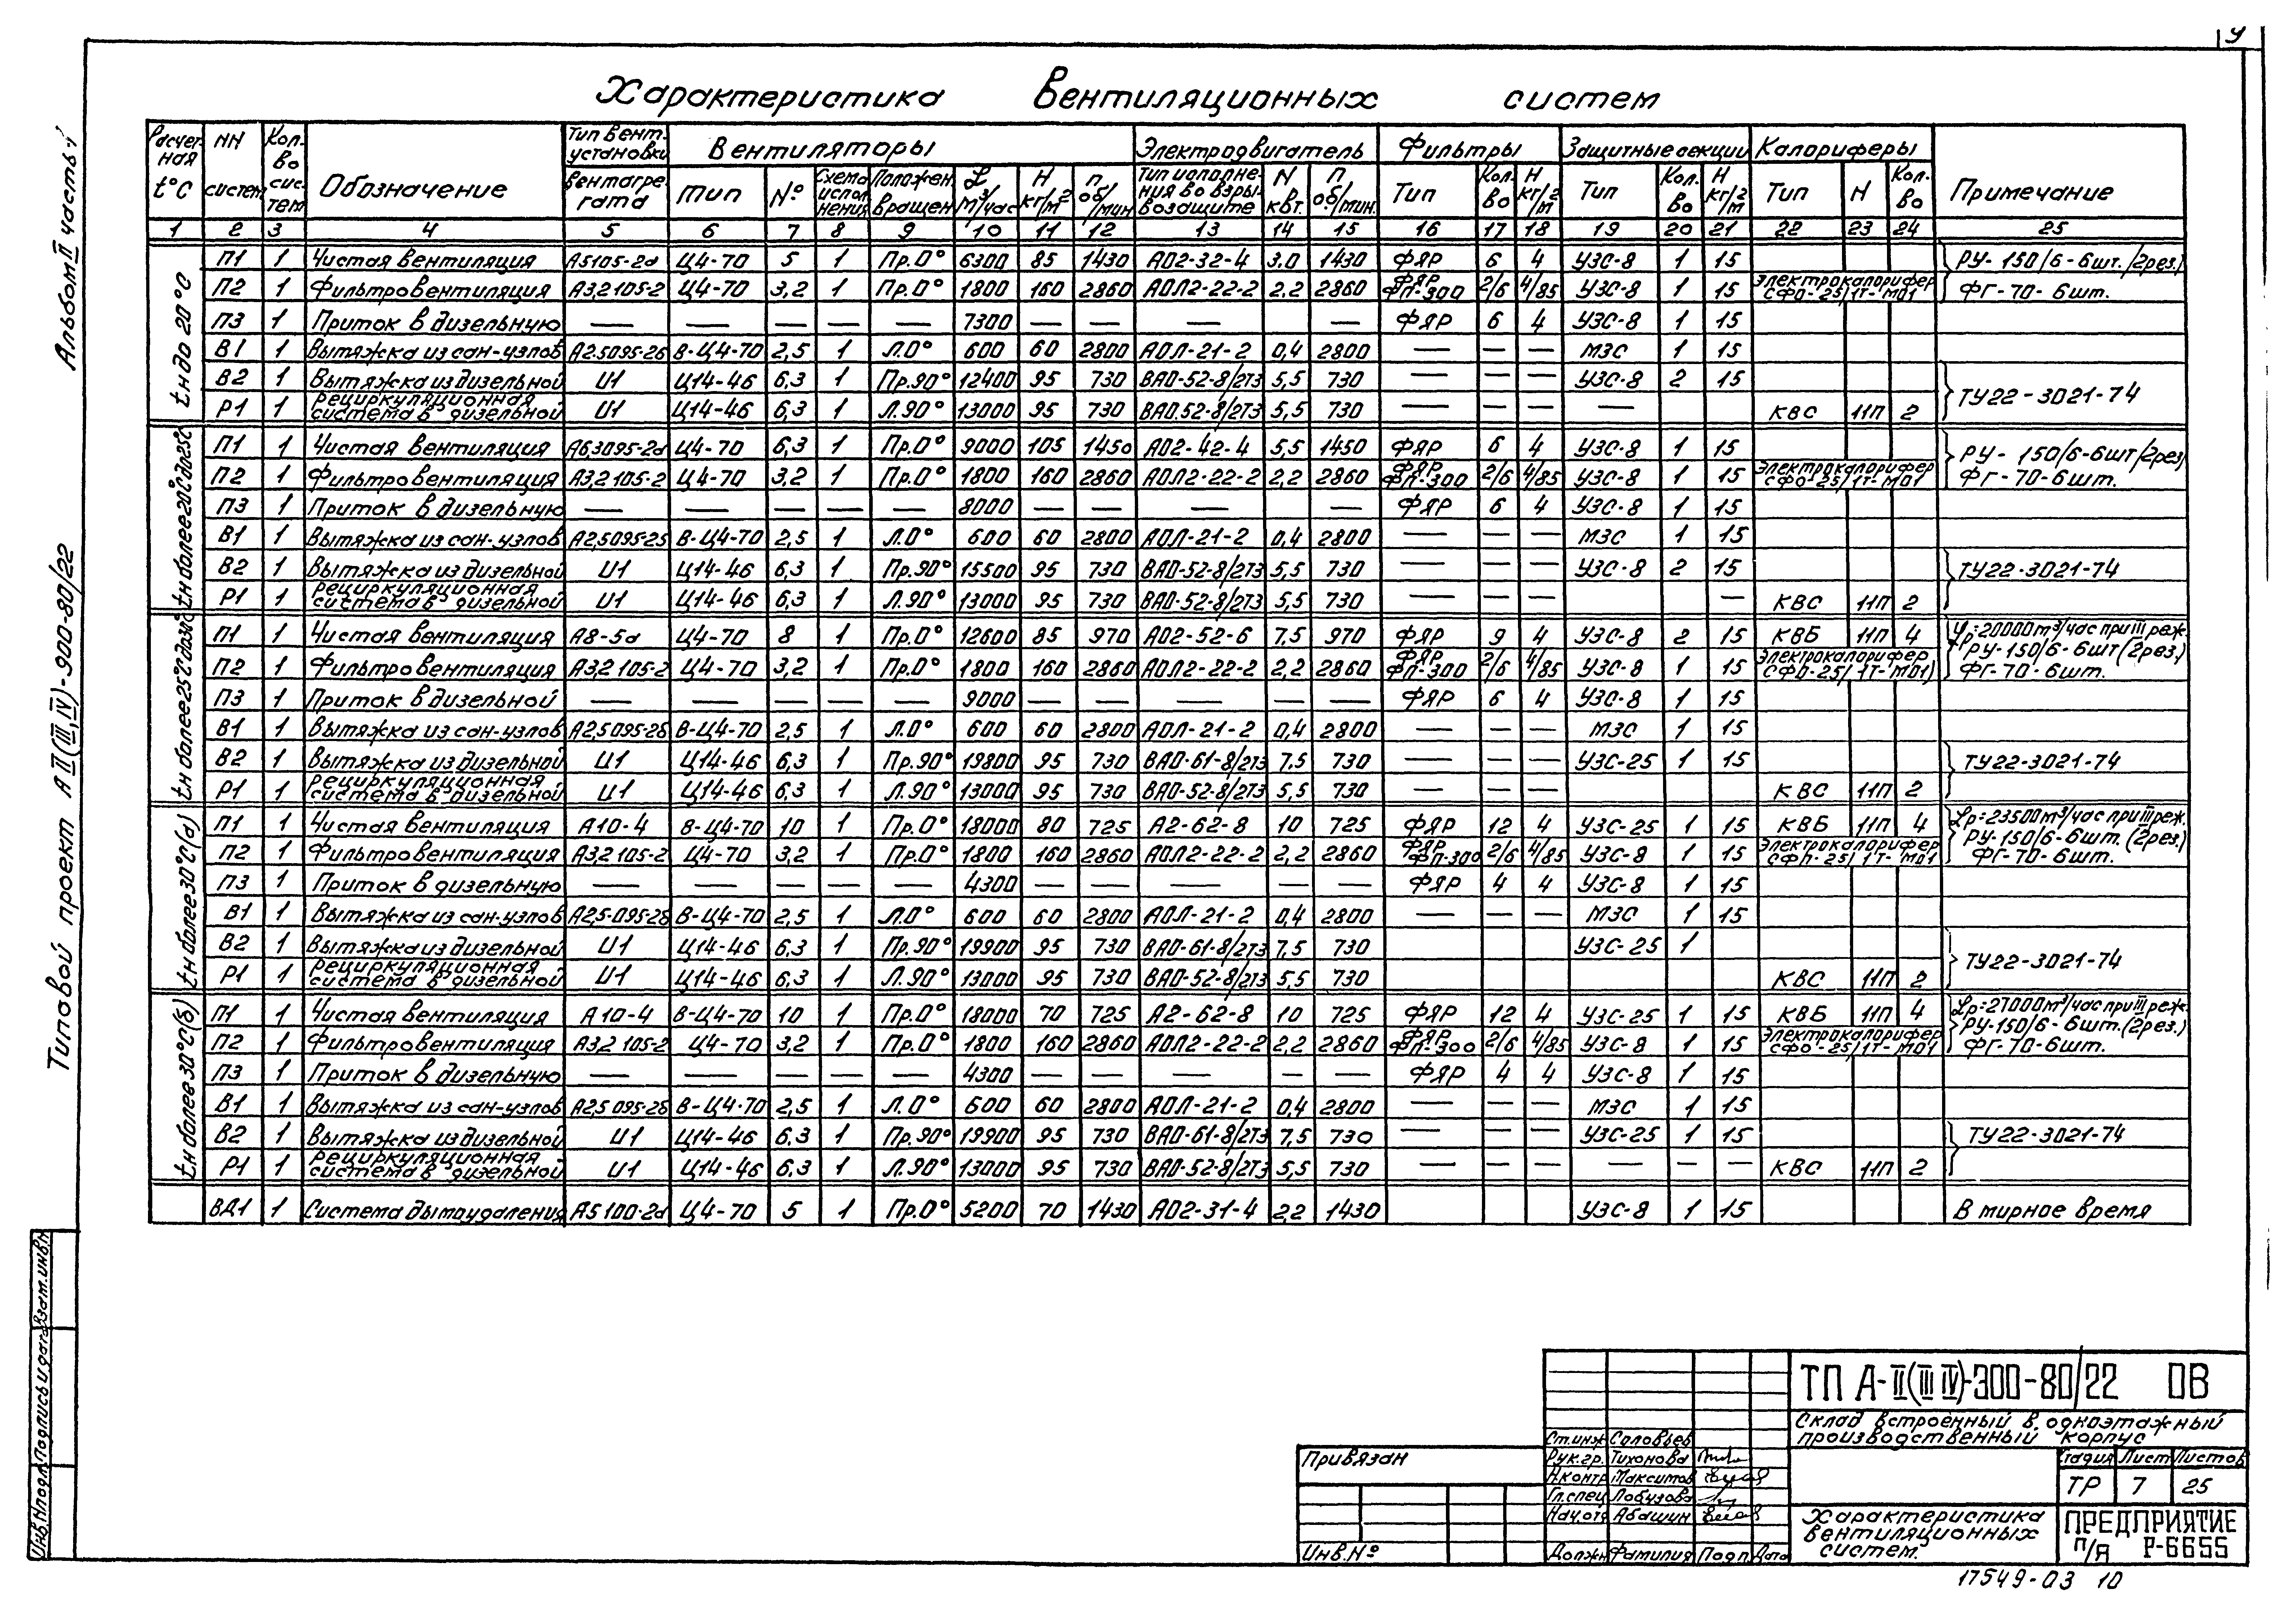 9
Характеристика Вентиляционных систем
Альбом II часть 1
Типовой проект А II (III, IV)-300-80/22
Расчетная t°С | NN систем | Кол-во систем | Обозначение | Тип вент. установки вентагрегата | Вентиляторы | Электродвигатель | Фильтры | Защитные секции | Калориферы | Примечание
Тип | № | Схема исполнения | Положен. вращен. | L м³/час | H кг/м² | n об/мин | Тип исполнения во взрывозащите | N квт. | n об/мин. | Тип | Кол-во | H кг/м² | Тип | Кол-во | H кг/м² | Тип | Н | Кол-во
1 2 3 4 5 6 7 8 9 10 11 12 13 14 15 16 17 18 19 20 21 22 23 24 25
tн до 20°С
П1 1 Чистая вентиляция А5105-2а Ц4-70 5 1 Пр.0° 6300 85 1430 АО2-32-4 3.0 1430 ФЯР 6 4 УЗС-8 1 15 РУ-150/6-6шт. /2рез.)
П2 1 Фильтровентиляция А3,2105-2 Ц4-70 3,2 1 Пр.0° 1800 160 2860 АОЛ2-22-2 2,2 2860 ФЯР ФП-300 2/6 4/85 УЗС-8 1 15 Электрокалорифер СФО-25/1Т-М01 ФГ-70-6шт.
П3 1 Приток в дизельную — — — — 7300 — — — — ФЯР 6 4 УЗС-8 1 15
В1 1 Вытяжка из сан-узлов А2.5095-2б В-Ц4-70 2,5 1 Л.0° 600 60 2800 АОЛ-21-2 0,4 2800 — — — МЗС 1 15
В2 1 Вытяжка из дизельной U1 Ц14-46 6,3 1 Пр.90° 12400 95 730 ВАО-52-8/2Т3 5,5 730 — — — УЗС-8 2 15 ТУ22-3021-74
Р1 1 Рециркуляционная система в дизельной U1 Ц14-46 6,3 1 Л.90° 13000 95 730 ВАО.52-8/2Т3 5,5 730 — — — — КВС 11П 2
tн более 20°С до 25°С
П1 1 Чистая вентиляция А6,3095-2а Ц4-70 6,3 1 Пр.0° 9000 105 1450 АО2-42-4 5,5 1450 ФЯР 6 4 УЗС-8 1 15 РУ-150/6-6шт/2рез)
П2 1 Фильтровентиляция А3,2105-2 Ц4-70 3,2 1 Пр.0° 1800 160 2860 АОЛ2-22-2 2,2 2860 ФЯР ФП-300 2/6 4/85 УЗС-8 1 15 Электрокалорифер СФО-25/1Т-М01 ФГ-70-6шт.
П3 1 Приток в дизельную — — — — — 8000 — — — — ФЯР 6 4 УЗС-8 1 15
В1 1 Вытяжка из сан-узлов А2,5095-2б В-Ц4-70 2,5 1 Л.0° 600 60 2800 АОЛ-21-2 0,4 2800 — — — МЗС 1 15
В2 1 Вытяжка из дизельной U1 Ц14-46 6,3 1 Пр.90° 15500 95 730 ВАО-52-8/2Т3 5,5 730 — — — УЗС-8 2 15 ТУ22-3021-74
Р1 1 Рециркуляционная система в дизельной U1 Ц14-46 6,3 1 Л.90° 13000 95 730 ВАО-52-8/2Т3 5,5 730 — — — — КВС 11П 2
tн более 25°С до 30°С
П1 1 Чистая вентиляция А8-5а Ц4-70 8 1 Пр.0° 12600 85 970 АО2-52-6 7,5 970 ФЯР 9 4 УЗС-8 2 15 КВБ 11П 4 Lр=20000м³/час при III реж.
П2 1 Фильтровентиляция А3,2105-2 Ц4-70 3,2 1 Пр.0° 1800 160 2860 АОЛ2-22-2 2,2 2860 ФЯР ФП-300 2/6 4/85 УЗС-8 1 15 Электрокалорифер СФО-25/1Т-М01) РУ-150/6-6шт (2рез.) ФГ-70-6шт.
П3 1 Приток в дизельной — — — — — 9000 — — — — ФЯР 6 4 УЗС-8 1 15
В1 1 Вытяжка из сан-узлов А2,5095-2б В-Ц4-70 2,5 1 Л.0° 600 60 2800 АОЛ-21-2 0,4 2800 — — — МЗС 1 15
В2 1 Вытяжка из дизельной U1 Ц14-46 6,3 1 Пр.90° 19800 95 730 ВАО-61-8/2Т3 7,5 730 — — — УЗС-25 1 15 ТУ22-3021-74
Р1 1 Рециркуляционная система в дизельной U1 Ц14-46 6,3 1 Л.90° 13000 95 730 ВАО-52-8/2Т3 5,5 730 — — — КВС 11П 2
tн более 30°С (а)
П1 1 Чистая вентиляция А10-4 В-Ц4-70 10 1 Пр.0° 18000 80 725 А2-62-8 10 725 ФЯР 12 4 УЗС-25 1 15 КВБ 11П 4 Lр=23500м³/час при III реж.
П2 1 Фильтровентиляция А3,2105-2 Ц4-70 3,2 1 Пр.0° 1800 160 2860 АОЛ2-22-2 2,2 2860 ФЯР ФП-300 2/6 4/85 УЗС-8 1 15 Электрокалорифер СФО-25/1Т-М01 РУ-150/6-6шт. (2рез.) ФГ-70-6шт.
П3 1 Приток в дизельную — — — — — 4300 — — — — — ФЯР 4 4 УЗС-8 1 15
В1 1 Вытяжка из сан-узлов А2,5-095-2б В-Ц4-70 2,5 1 Л.0° 600 60 2800 АОЛ-21-2 0,4 2800 — — — МЗС 1 15
В2 1 Вытяжка из дизельной U1 Ц14-46 6,3 1 Пр.90° 19900 95 730 ВАО-61-8/2Т3 7,5 730 УЗС-25 1 ТУ22-3021-74
Р1 1 Рециркуляционная система в дизельной U1 Ц14-46 6,3 1 Л.90° 13000 95 730 ВАО-52-8/2Т3 5,5 730 КВС 11П 2
tн более 30°С (б)
П1 1 Чистая вентиляция А10-4 В-Ц4-70 10 1 Пр.0° 18000 70 725 А2-62-8 10 725 ФЯР 12 4 УЗС-25 1 15 КВБ 11П 4 Lр=27000м³/час при III реж.
П2 1 Фильтровентиляция А3,2105-2 Ц4-70 3,2 1 Пр.0° 1800 160 2860 АОЛ2-22-2 2,2 2860 ФЯР ФП-300 2/6 4/85 УЗС-8 1 15 Электрокалорифер СФО-25/1Т-М01 РУ-150/6-6шт. (2рез.) ФГ-70-6шт.
П3 1 Приток в дизельную — — — — — 4300 — — — — — ФЯР 4 4 УЗС-8 1 15
В1 1 Вытяжка из сан-узлов А2,5095-2б В-Ц4-70 2,5 1 Л.0° 600 60 2800 АОЛ-21-2 0,4 2800 — — — МЗС 1 15
В2 1 Вытяжка из дизельной U1 Ц14-46 6,3 1 Пр.90° 19900 95 730 ВАО-61-8/2Т3 7,5 730 — — — УЗС-25 1 15 ТУ22-3021-74
Р1 1 Рециркуляционная система в дизельной U1 Ц14-46 6,3 1 Л.90° 13000 95 730 ВАО-52-8/2Т3 5,5 730 — — — — — — КВС 11П 2
ВД1 1 Система дымоудаления А5100-2а Ц4-70 5 1 Пр.0° 5200 70 1430 АО2-31-4 2,2 1430 УЗС-8 1 15 В мирное время
Инв.Nподл. Подпись и дата Взам.инв.N
Привязан
Инв.№
Ст.инж Соловьев
Рук.гр. Тихонова
Н.контр Максимов
Гл.спец Лобузова
Нач.отд Абашин
Должн Фамилия Подп. Дата
ТП А-II(III IV)-300-80/22 ОВ
Склад встроенный в одноэтажный
производственный корпус
Стадия Лист Листов
ТР 7 25
Характеристика
вентиляционных
систем.
ПРЕДПРИЯТИЕ
П/Я Р-6655
17549-03 10